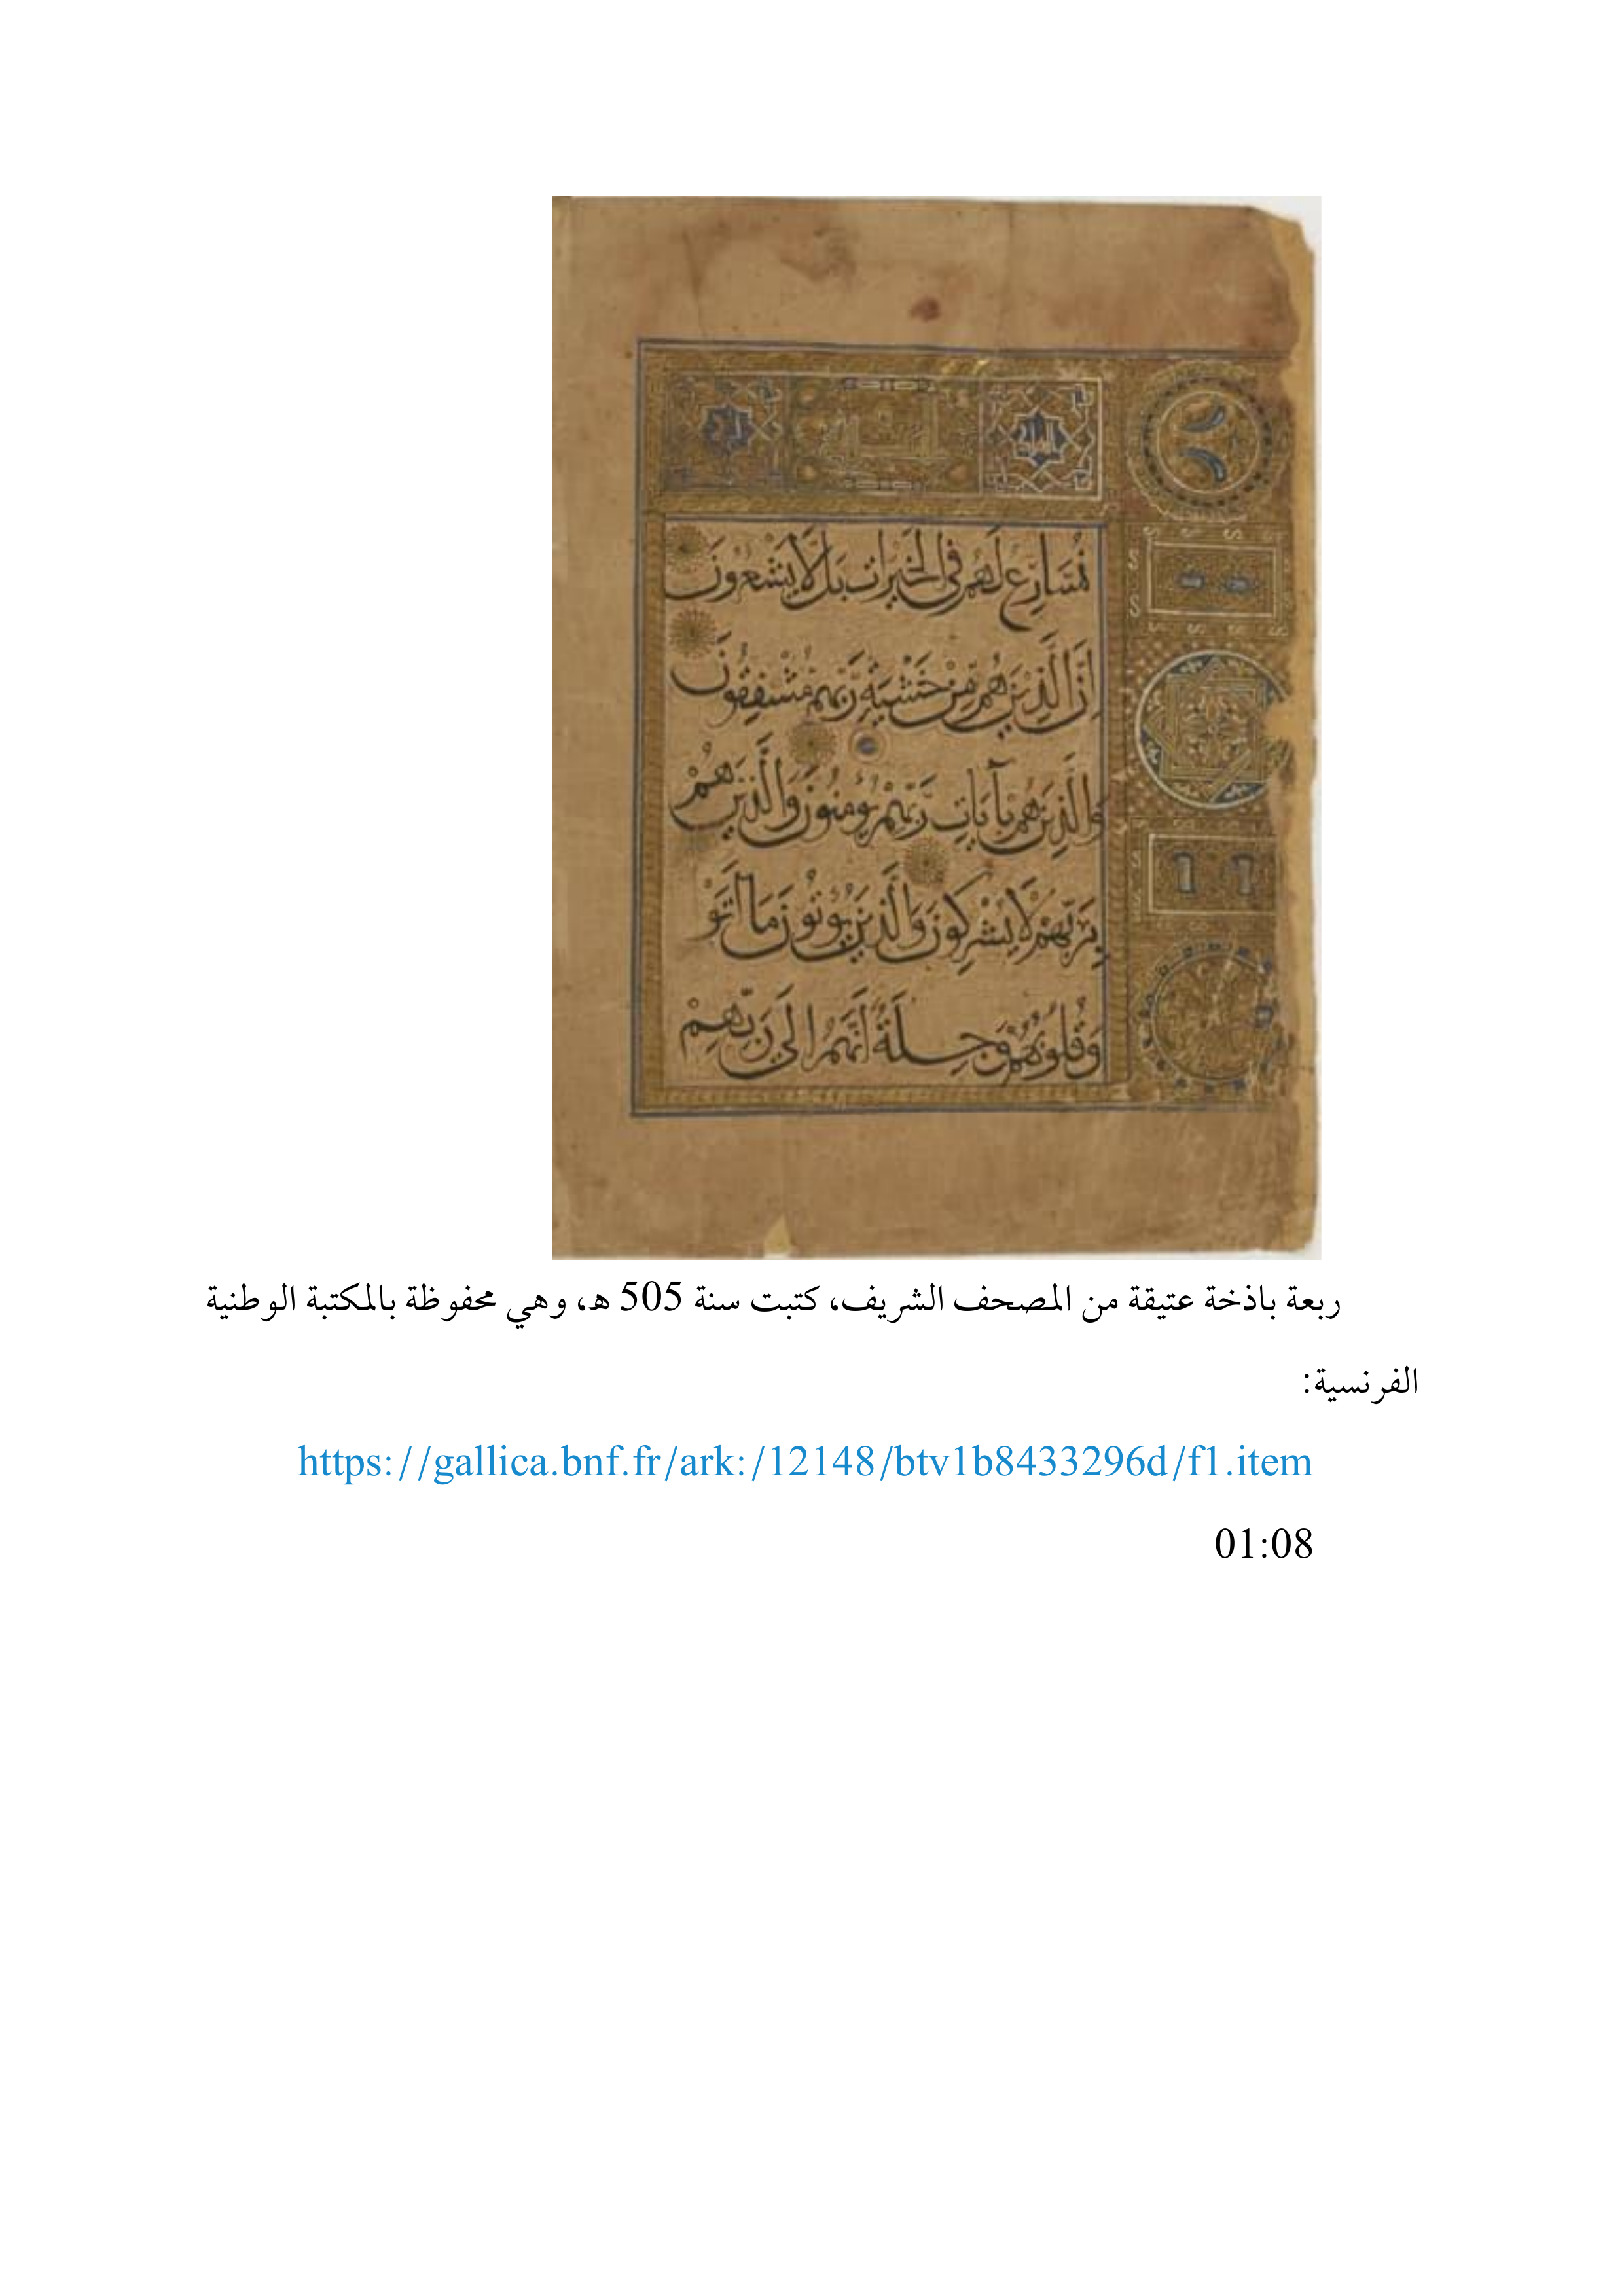 نُسَارِعُ لَهُمْ فِي الْخَيْرَاتِ بَل لَّا يَشْعُرُونَ
إِنَّ الَّذِينَ هُم مِّنْ خَشْيَةِ رَبِّهِم مُّشْفِقُونَ
وَالَّذِينَ هُم بِآيَاتِ رَبِّهِمْ يُؤْمِنُونَ وَالَّذِينَ هُمْ
بِرَبِّهِمْ لَا يُشْرِكُونَ وَالَّذِينَ يُؤْتُونَ مَا آتَوْ
وَقُلُوبُهُمْ وَجِلَةٌ أَنَّهُمْ إِلَى رَبِّهِمْ
ربعة باذخة عتيقة من المصحف الشريف، كتبت سنة 505 هـ، وهي محفوظة بالمكتبة الوطنية
الفرنسية:
https://gallica.bnf.fr/ark:/12148/btv1b8433296d/f1.item
01:08